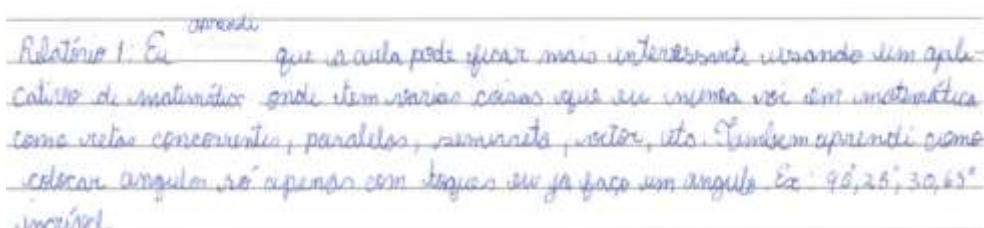 aprendi
Relatório 1: Eu que a aula pode ficar mais interessante usando um apli-
cativo de matemática onde tem varias coisas que eu nunca vi em matemática
como retas concorrentes, paralelas, semirreta, vetor, etc. Tambem aprendi como
colocar angulos só apenas com toques eu já faço um angulo. Ex: 90°, 25°, 30, 65°
incrível.